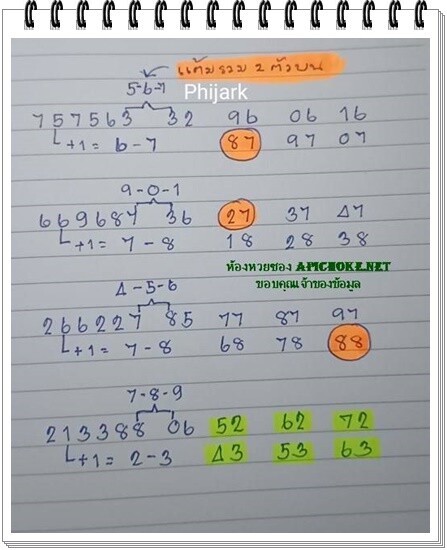 แต้มรวม 2 ตัวบน
5-6-7
Phijark
757563 32 96 06 16
+1 = 6-7 87 97 07
9-0-1
669687 36 27 37 47
+1 = 7-8 18 28 38
ห้องหวยซอง APICHOKE.NET
ขอบคุณเจ้าของข้อมูล
4-5-6
266227 85 77 87 97
+1 = 7-8 68 78 88
7-8-9
213388 06 52 62 72
+1 = 2-3 43 53 63